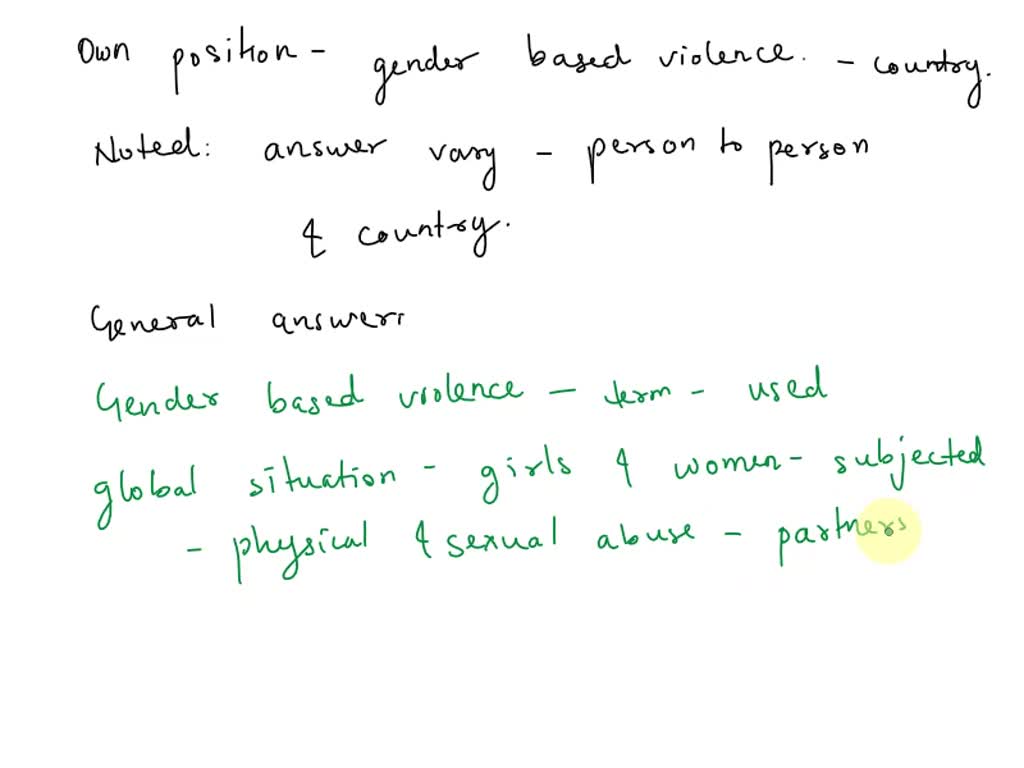 Own position - gender based violence. - country.
Noted: answer vary - person to person
& country.
General answer:
Gender based violence - term - used
global situation - girls & women - subjected
- physical & sexual abuse - partners